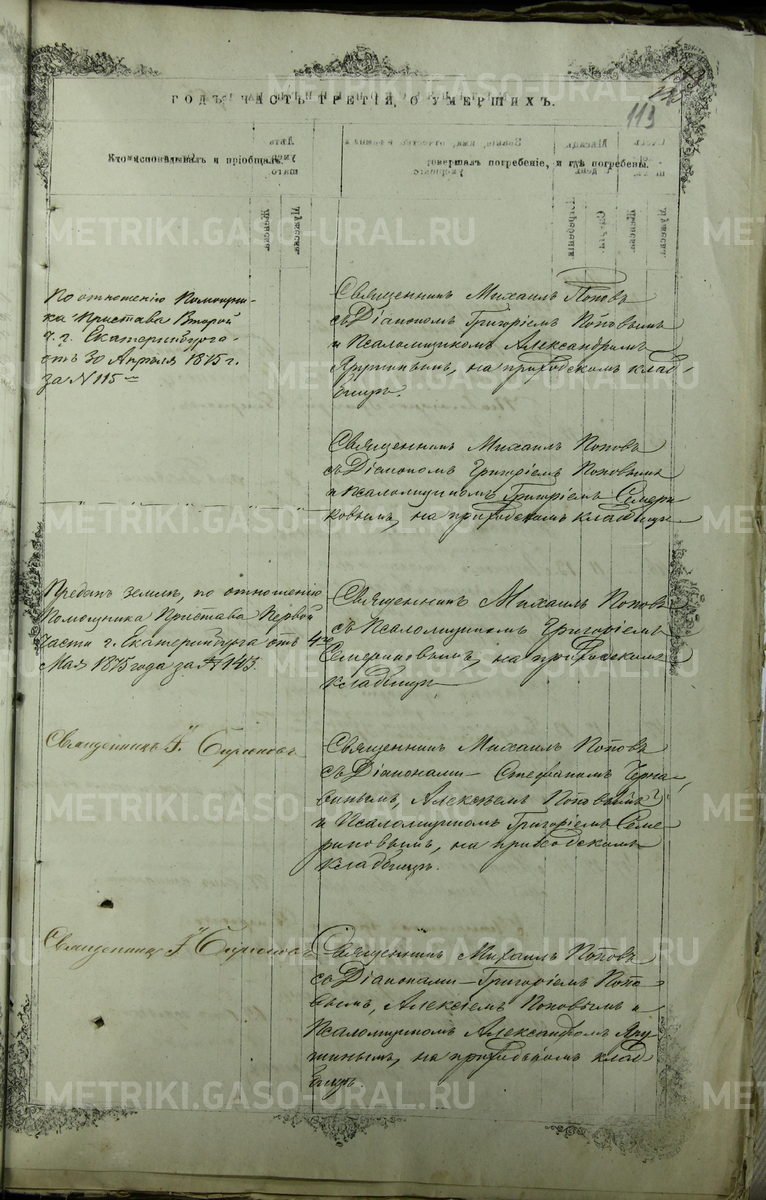 113
ГОДЪ ЧАСТЬ ТРЕТІЙ, О УМЕРШИХЪ.
Кто исповѣдывалъ и пріобщалъ.
совершалъ погребеніе, и гдѣ погребены.
По отношенію Помощни-
ка Пристава Второй
ч. г. Екатеринбурга
отъ 30 Апрѣля 1875 г.
за № 115
Священникъ Михаилъ Поповъ
съ Діакономъ Григоріемъ Поповымъ
и Псаломщикомъ Александромъ
на приходскомъ клад-
бищѣ.
Священникъ Михаилъ Поповъ
съ Діакономъ Григоріемъ Поповымъ
и Псаломщикомъ Григоріемъ Семери-
ковымъ, на приходскомъ кладбищѣ
Преданъ землѣ, по отношенію
Помощника Пристава Первой
части г. Екатеринбурга отъ 4го
Мая 1875 года за № 143.
Священникъ Михаилъ Поповъ
съ Псаломщикомъ Григоріемъ
Семериковымъ, на приходскомъ
кладбищѣ
Священникъ
Священникъ Михаилъ Поповъ
съ Діаконами Стефаномъ
Алексѣемъ Поповымъ
и Псаломщикомъ Григоріемъ Семе-
риковымъ, на приходскомъ
кладбищѣ.
Священникъ
Священникъ Михаилъ Поповъ
со Діаконами Григоріемъ Попо-
вымъ, Алексіемъ Поповымъ и
Псаломщикомъ Александромъ
на приходскомъ клад-
бищѣ.
METRIKI.GASO-URAL.RU